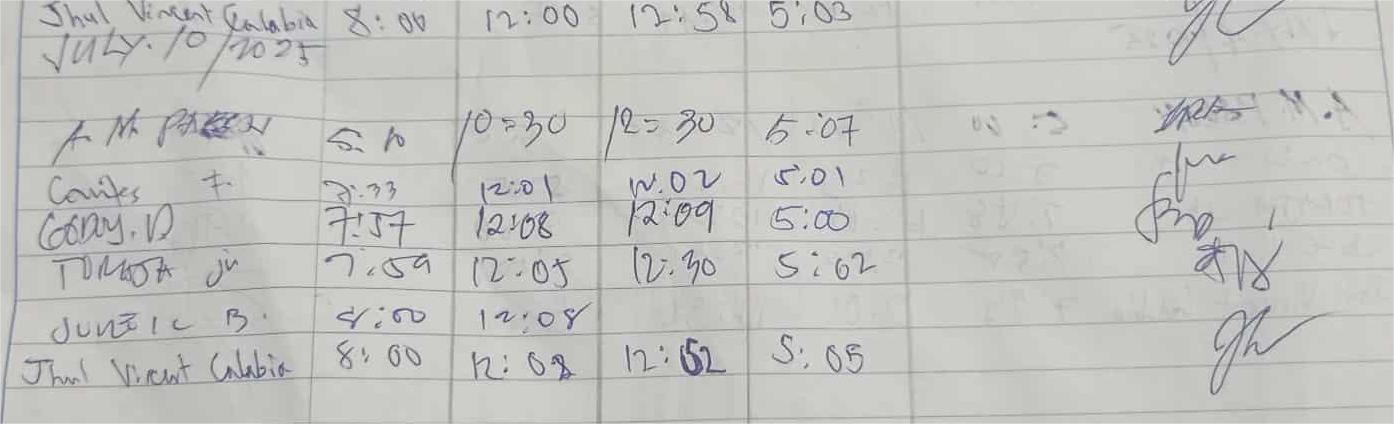 Jhul Vincent Calabia 8:00 12:00 12:58 5:03
JULY.10/2025
A M 5:10 10=30 12=30 5:07
Canites F. 7:33 12:01 12:02 5:01
CODY.D 7:57 12:08 12:09 5:00
jr 7:59 12:05 12:30 5:02
JUNEIL B. 8:00 12:08
Jhul Vincent Calabia 8:00 12:08 12:52 5:05